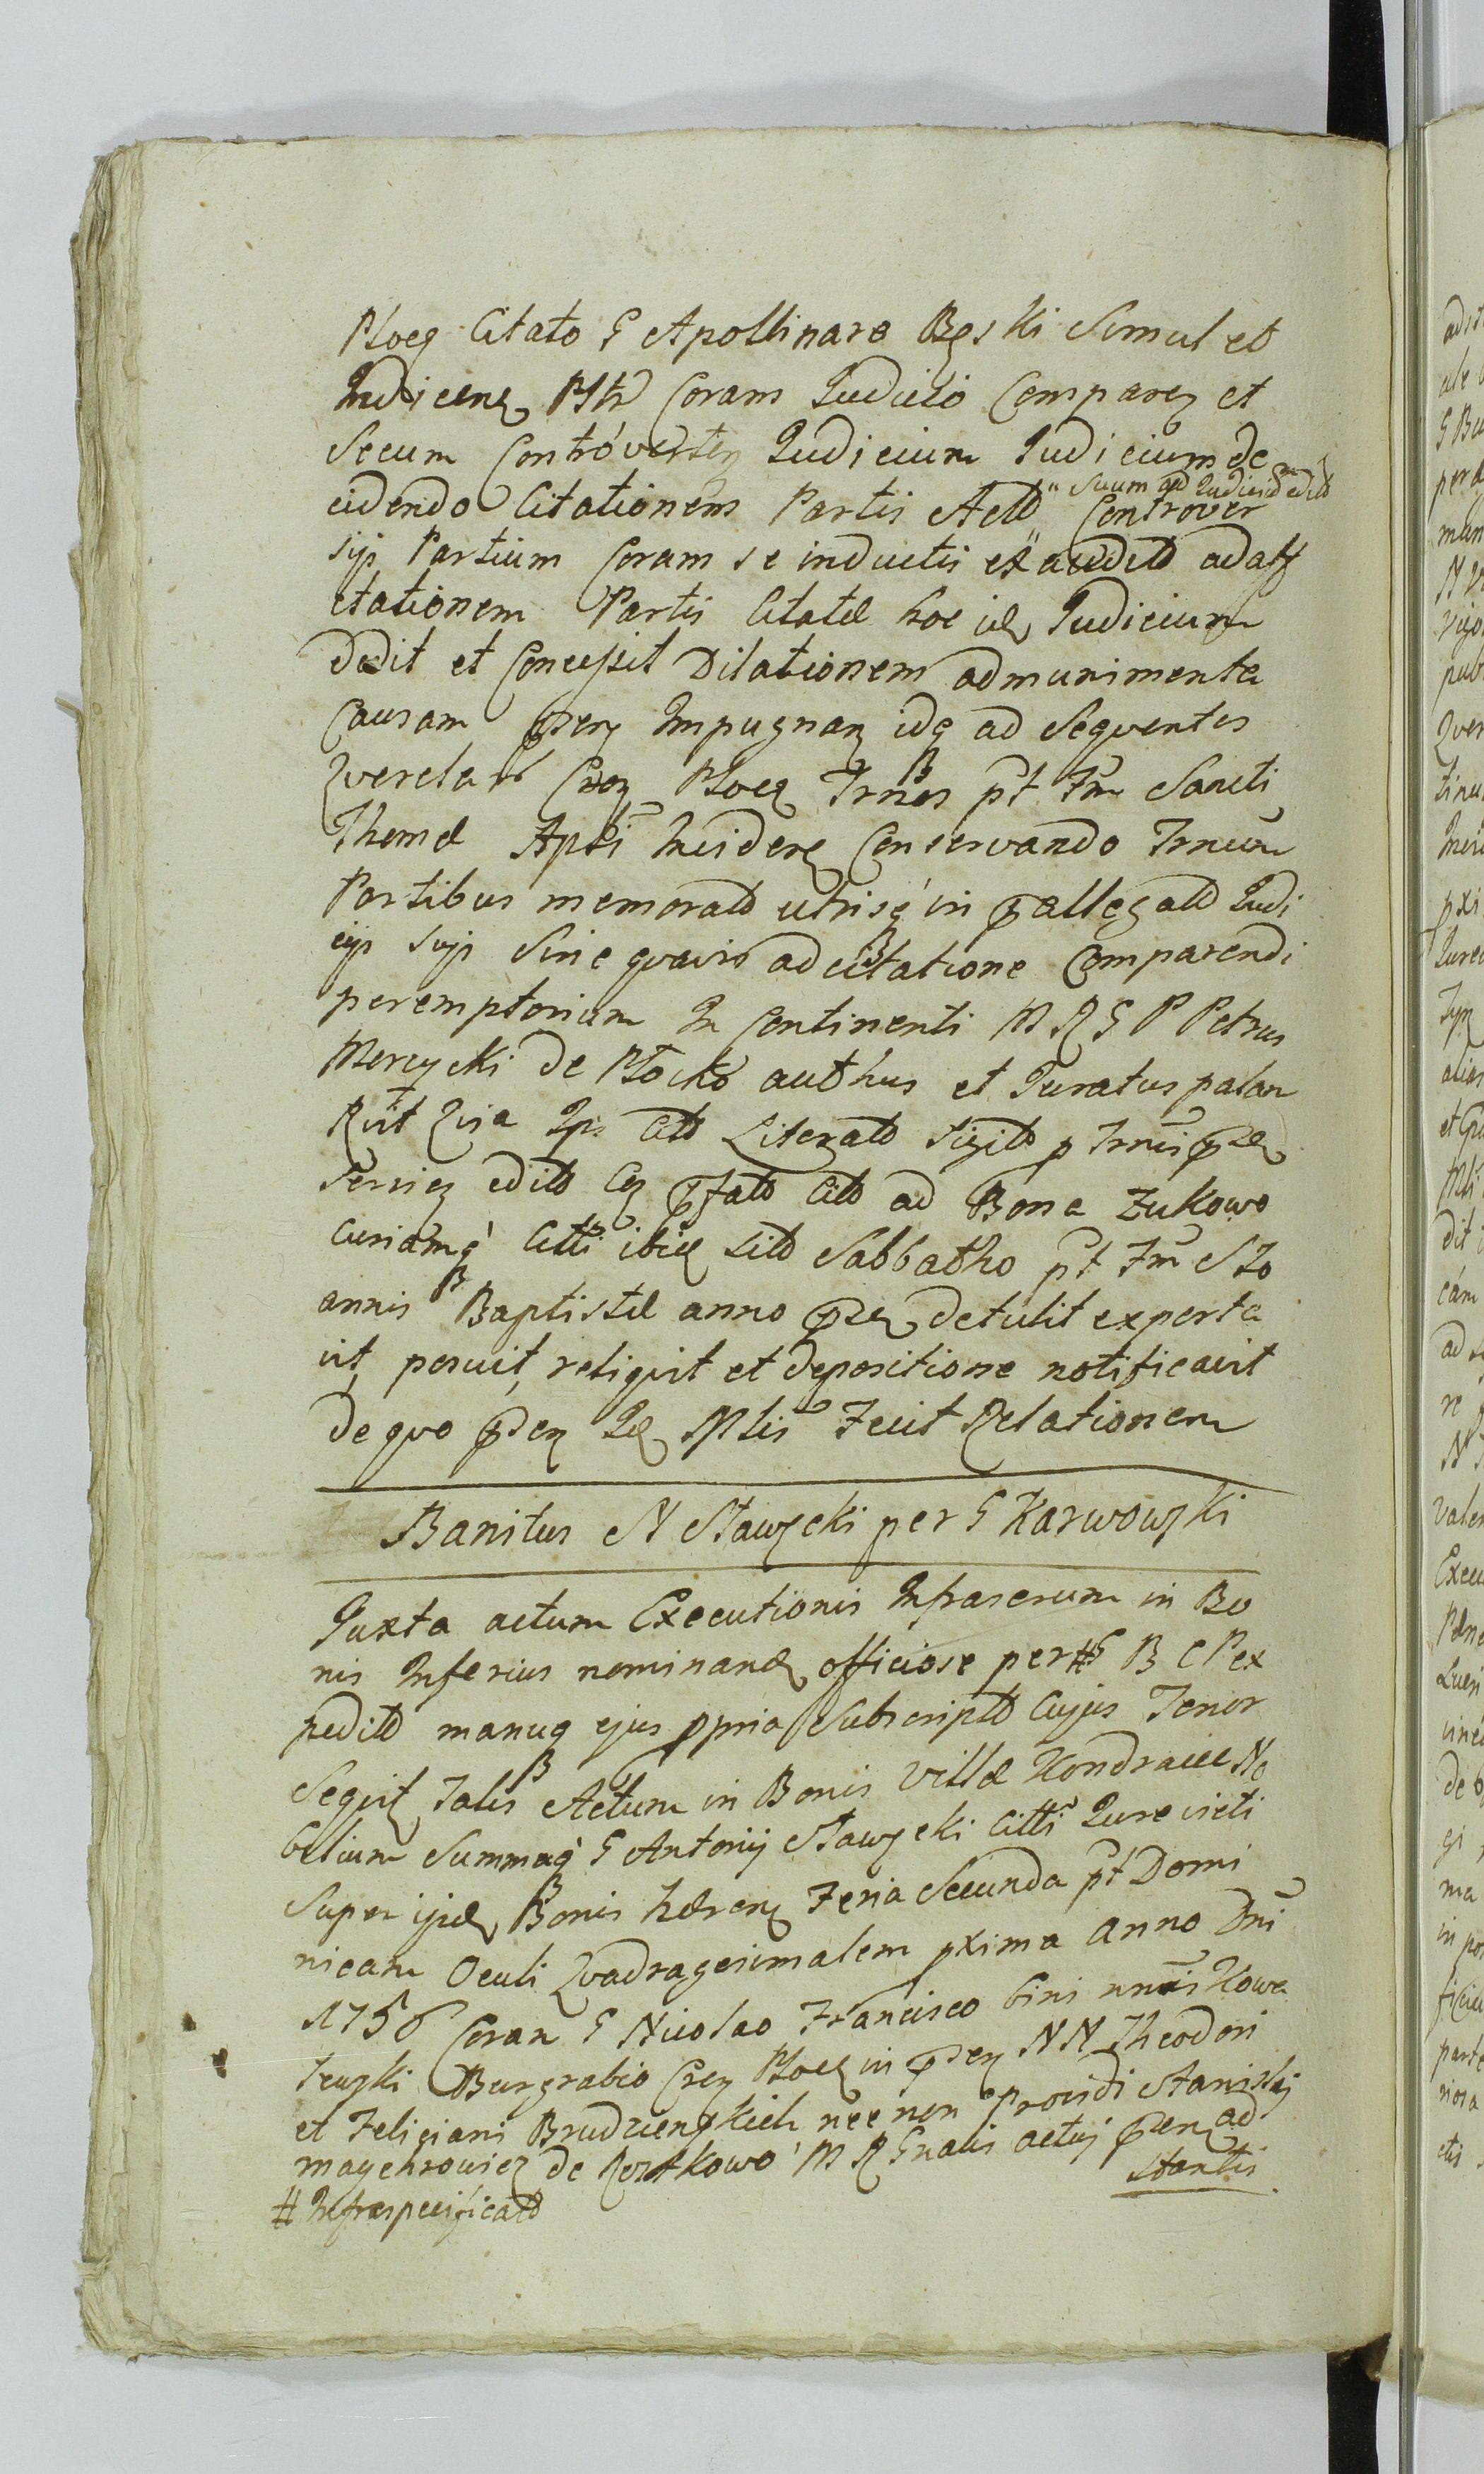 Płocq Citato G Apollinare Bęski Simul et
Indicenq Pltr Coram Judicio Comparen et
Secum Contróverten Judicium Judicium de
cidendo Citationem Partis Acto " Suum ad Judicio edito
Controver
sijs Partium Coram se inductis ex audito ad aff
ctationem Partis Citatæ hoc id Judicium
dedit et Concessit Dilationem ad munimenta
Causam pren Impugnan idq ad Sequentes
Querelas Cren Płoceq Trnos pt Fm Sancti
Thomæ Apli Inciden Conservando Trnum
Partibus memorato utrisq in præallegato Judi
cijs suis Sine quavis adcitatione Comparendi
peremptorium In Continenti M R G P Petrus
Mercycki de Płocko authus et Juratus palam
Rvit Quia Ips Cito Literato sigito p Trnus præ
servien edito Cq præfato Cito ad Bona Zukowo
Curiamq Citti ibid sito Sabbatho pt Fm S Jo
annis Baptistæ anno præ detulit exporta
vit, posuit, reliquit et depositione notificavit
de quo præn Id Mlis Fecit Relationem
Banitus N Sławęcki per G Karwowski
Juxta actum Executionis Infrascrum in Bo
nis Inferius nominand officiose per # G B C P ex
pedito manuq ejus ppria Subscripto Cujus Tenor
Sequit Talis Actum in Bonis Villæ Kondraiec No
bilium Summaq G Antonij Sławęcki Citti Jurevicti
Super ijsd Bonis hæren Feria Secunda pt Domi
nicam Oculi Quadragesimalem pxima Anno Dni
1756 Coram G Nicolao Francisco bini nnis Kowa
lewski Burgrabio Cren Płoceq in præn NN Theodori
et Feliciani Brudzienskich nec non Providi Stanislaj
maychrowicz de Rostkowo M R Gnalis actuj præn ad
stantis
# Infraspecificato